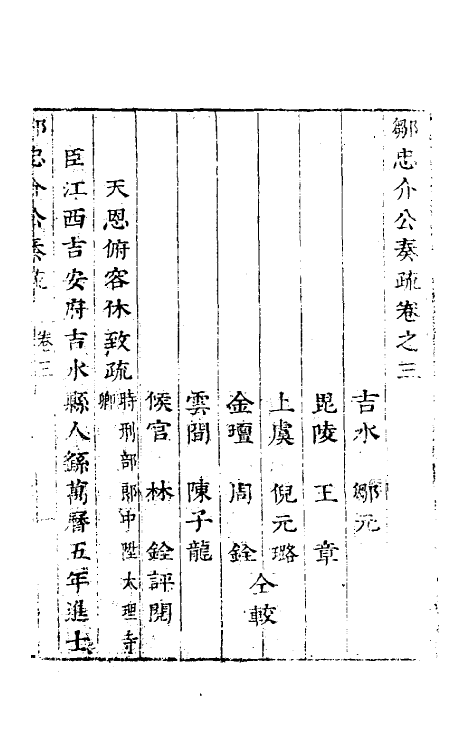 鄒忠介公奏疏卷之三
吉水　鄒元
毘陵　王　章
上虞　倪元璐
金壇　周　銓　仝較
雲間　陳子龍
候官　林　銓評閱
天恩俯容休致疏時刑部郎中陞大理寺卿
臣江西吉安府吉水縣人繇萬曆五年進士
忠介公奏疏　卷三